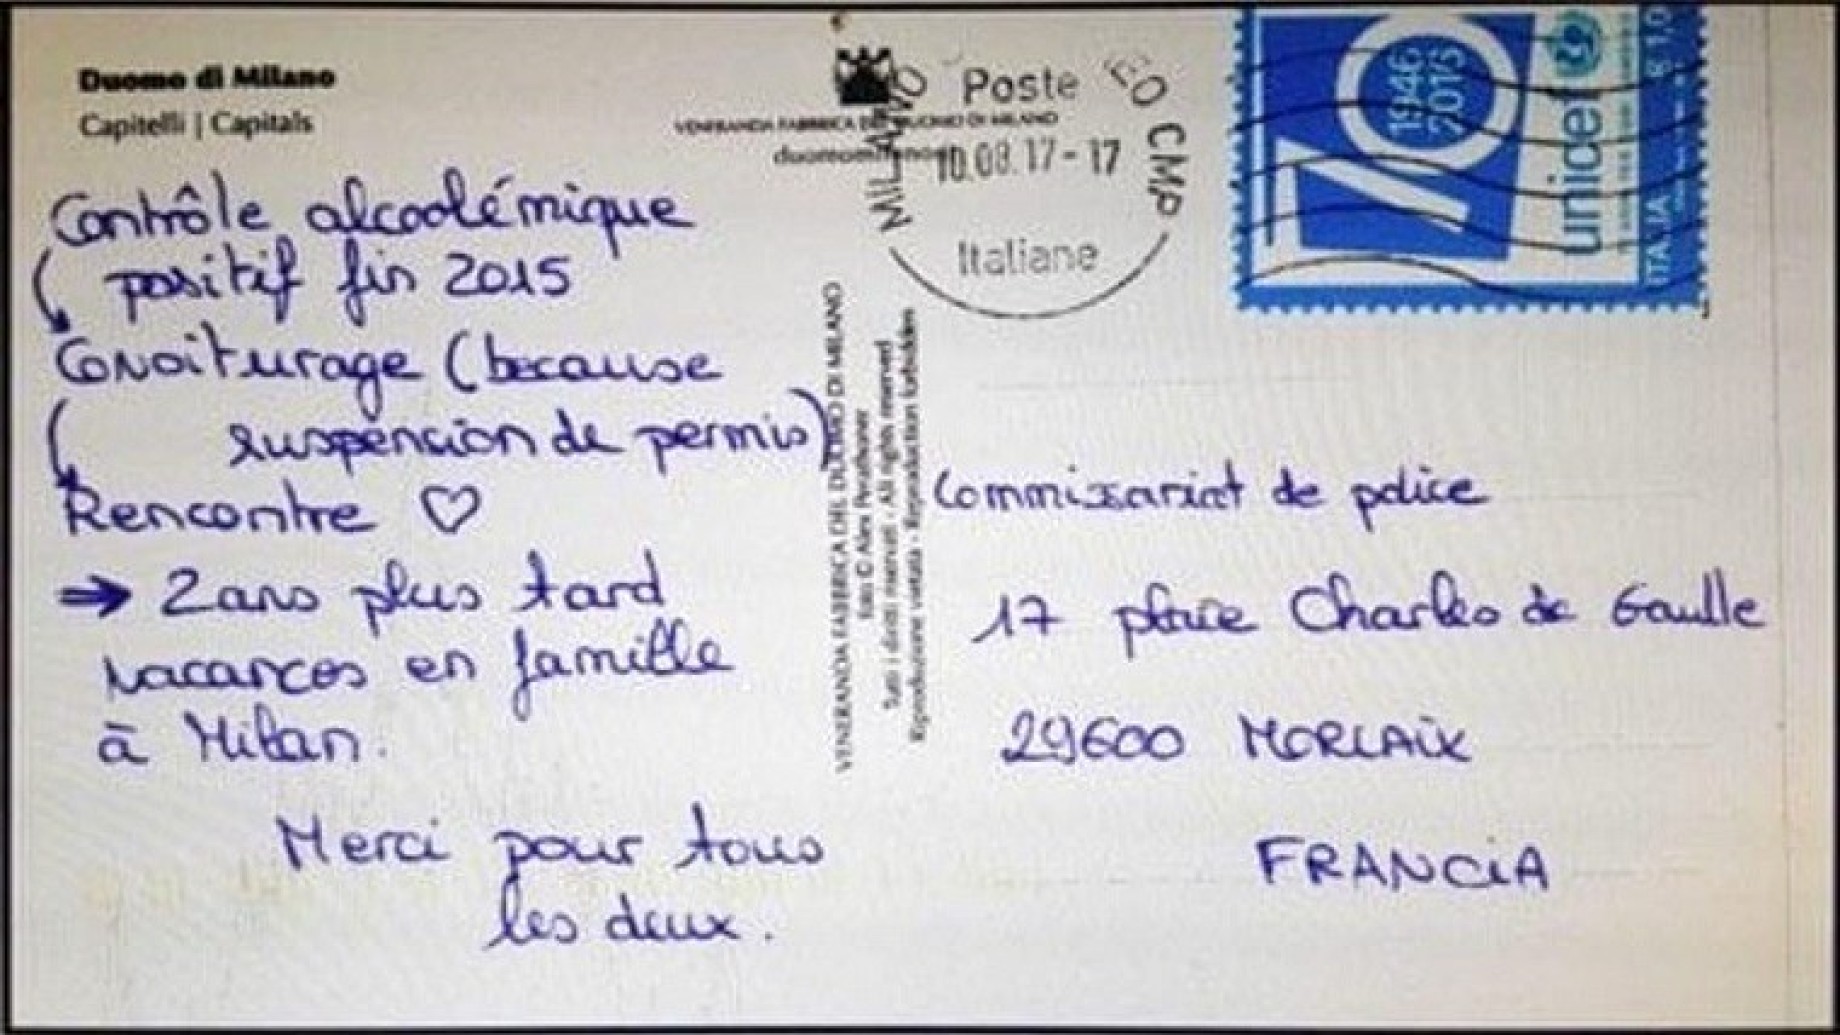 Duomo di Milano
Capitelli | Capitals
VENERANDA FABBRICA DEL DUOMO DI MILANO
Contrôle alcoolémique
positif fin 2015
Covoiturage (because
suspension de permis)
Rencontre ♡
⇒ 2 ans plus tard
vacances en famille
à Milan.
Merci pour tous
les deux.
VENERANDA FABBRICA DEL DUOMO DI MILANO
Tutti i diritti riservati - All rights reserved
Riproduzione vietata - Reproduction forbidden
MILANO
CMP
Poste
10.08.17-17
Italiane
70
1946
unicef
ITALIA
Commissariat de police
17 place Charles de Gaulle
29600 MORLAIX
FRANCiA